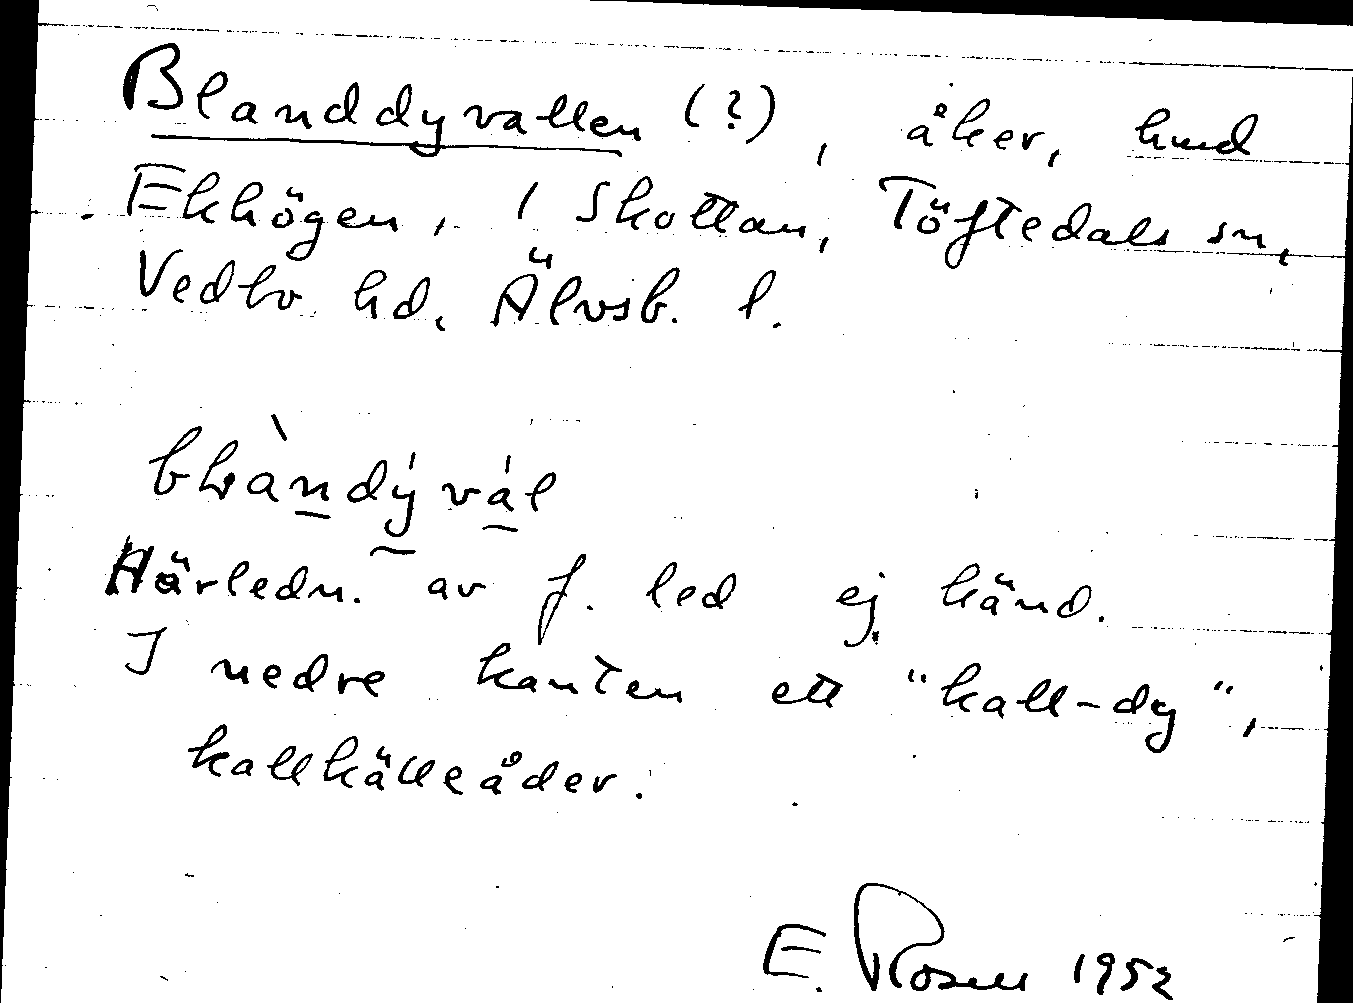 Blanddyvallen (?), åker, hmd
Ekhögen, 1 Skottan, Töftedals sn,
Vedbo hd, Älvsb. l.
Härledn. av f. led ej känd.
I nedre kanten ett "kall-dy",
kallkälleåder.
E. Rosell 1952